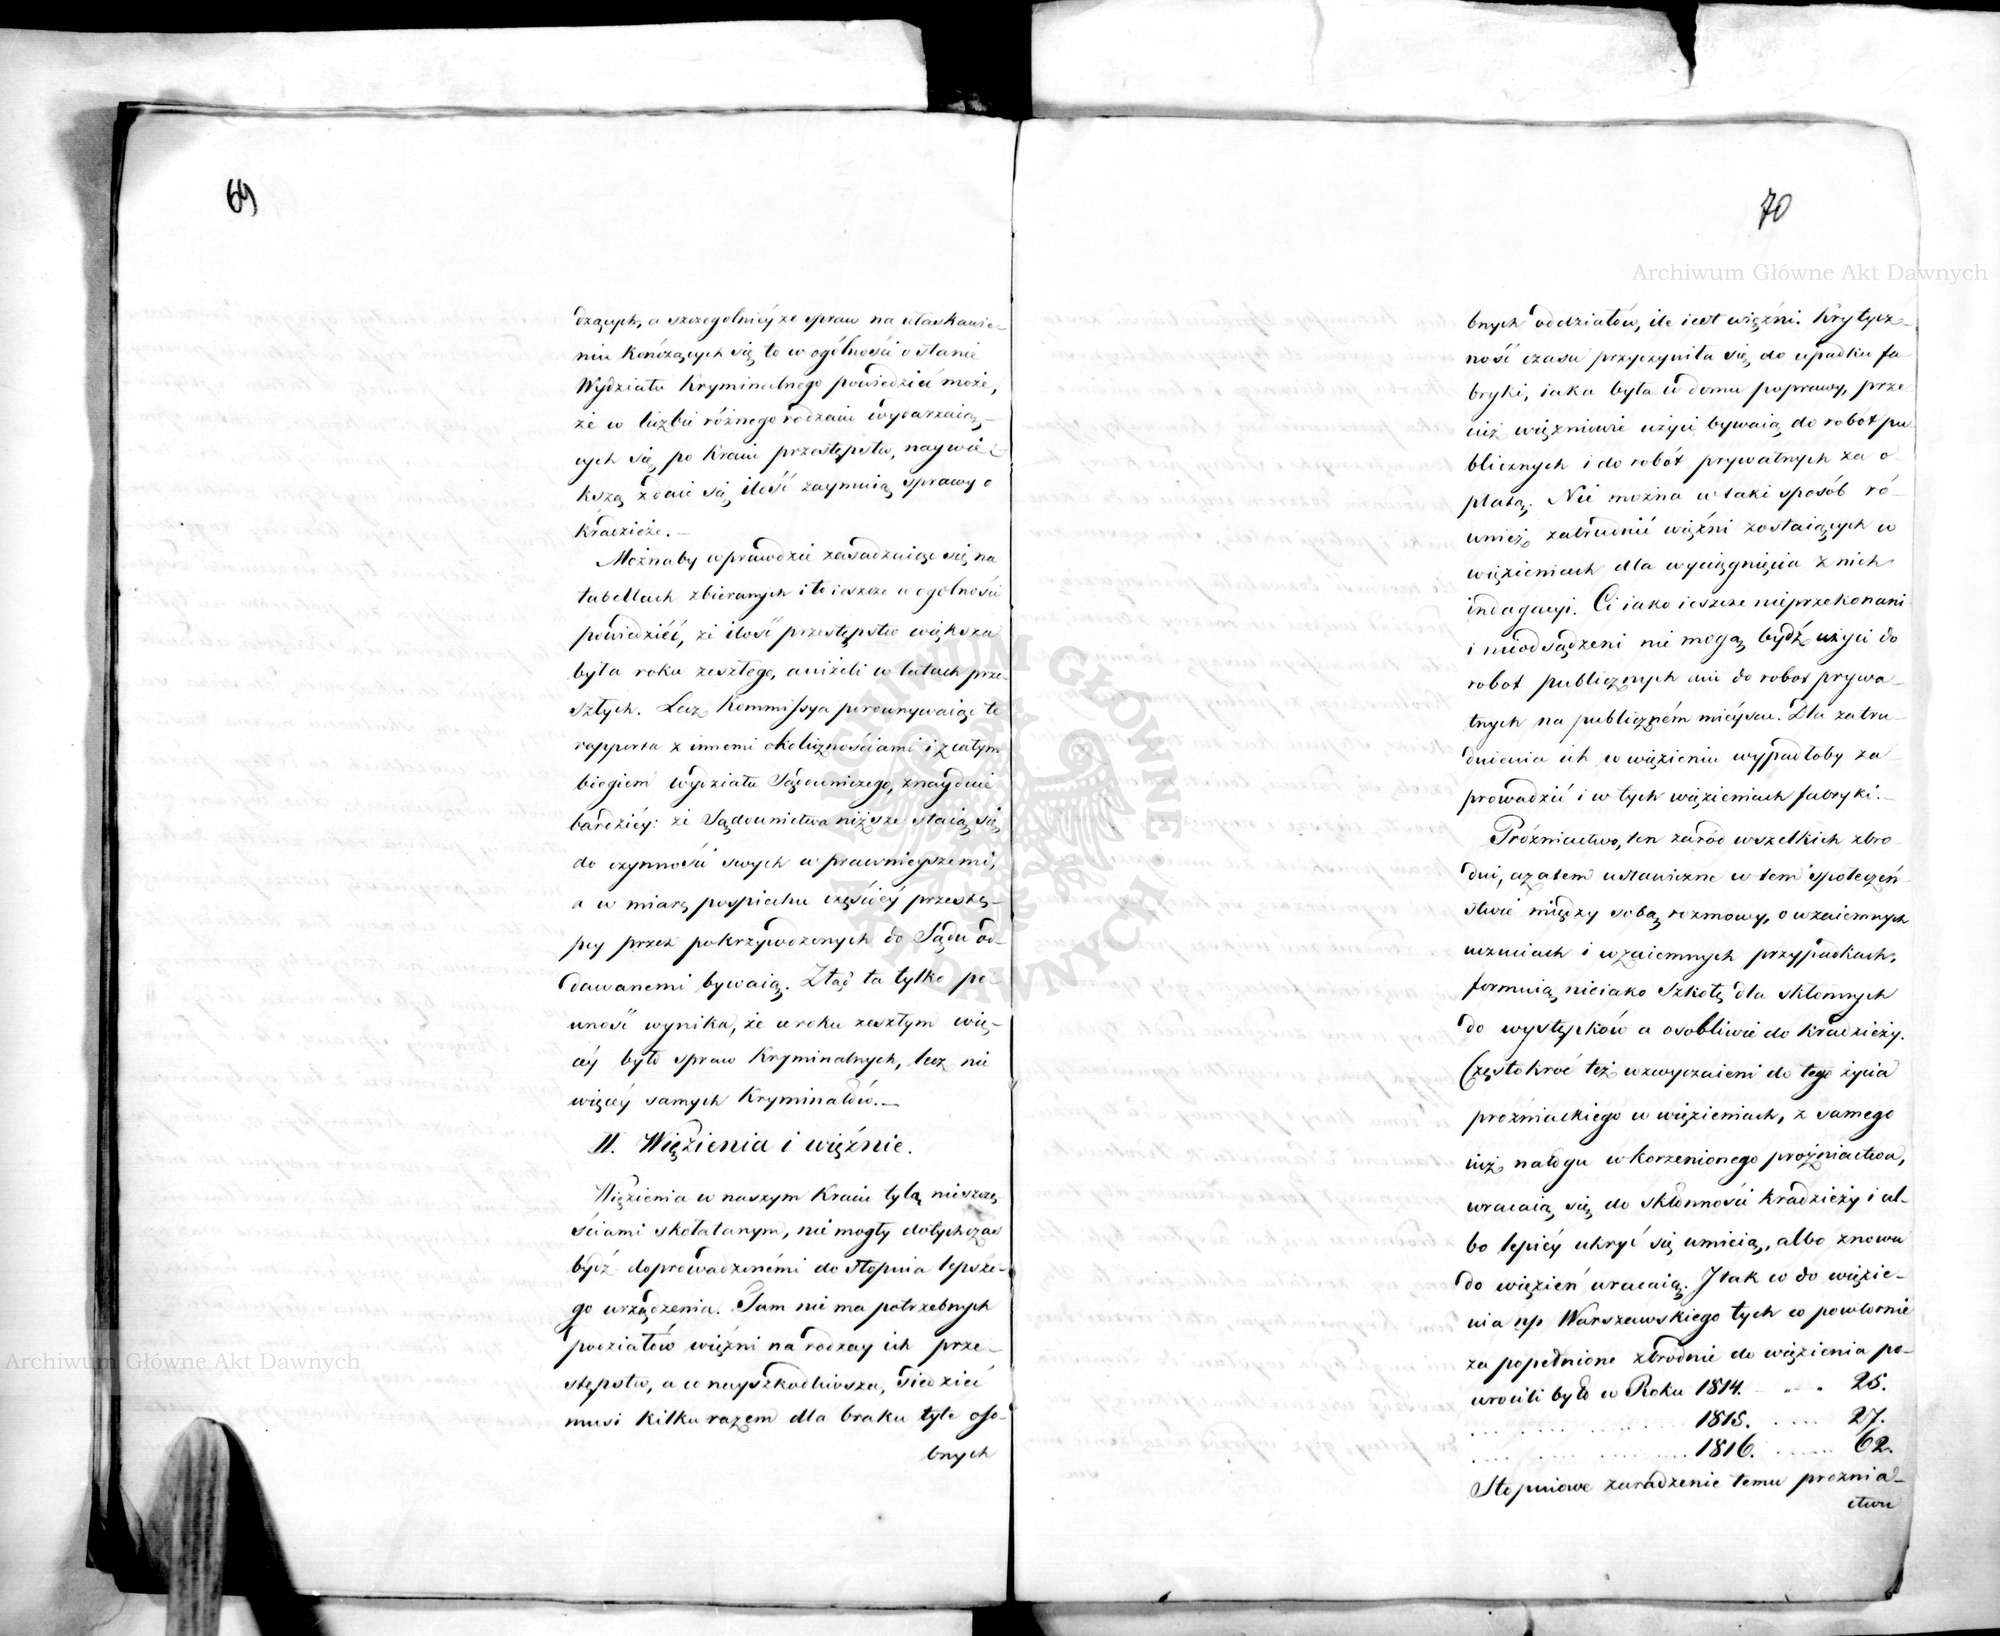 69
dzących, a szczegolniéy ze spraw na ułaskawie-
niu kończących się to w ogólności o stanie
Wydziału Kryminalnego powiedzieć może,
że w liczbie różnego rodzaiu wydarzaią-
cych się po Kraiu przestępstw, naywię-
kszą zdaie się ilość zaymuią sprawy o
kradzieże. -
Możnaby wprawdzie zasadzaiąc się na
tabellach zbieranych i to ieszcze w ogolnosci
powiedzieć, że ilość przestępstw większa
była roku zeszłego, aniżeli w latach prze-
szłych. Lecz Kommissya porownywaiąc te
rapporta z innemi okolicznościami i z całym
biegiem wydziału Sądowniczego, znayduie
bardziéy: że Sądownictwa niższe staią się
do czynności swych wprawnieyszemi,
a w miarę pospiechu częściéy przestę-
pcy przez pokrzywdzonych do Sądu od-
dawanemi bywaią. Ztąd ta tylko pe-
wność wynika, że w roku zeszłym wię-
céy było spraw Kryminalnych, lecz nie
więcéy samych Kryminałów. -
II. Więzienia i więźnie.
Więzienia w naszym Kraiu tylą nieszczę-
ściami skołatanym, nie mogły dotychczas
bydź doprowadzonémi do stopnia lepsze-
go urządzenia. Tam nie ma potrzebnych
podziałów więźni na rodzay ich prze-
stępstw, a co nayszkodliwsza, siedzieć
musi kilku razem dla braku tyle oso-
bnych
70
bnych oddziałów, ile iest więźni. Krytycz-
ność czasu przyczyniła się do upadku fa-
bryki, iaka była w domu poprawy, prze-
cież więzniowie użyci bywaią do robot pu
blicznych i do robót prywatnych za o-
płatą. Nie można w taki sposób ró-
wnież zatrudnić więźni zostaiących w
więzieniach dla wyciągnięcia z nich
indagacyi. Ci iako ieszcze nieprzekonani
i nieodsądzeni nie mogą bydź użyci do
robot publicznych ani do robot prywa-
tnych na publiczném mieyscu. Dla zatru-
dnienia ich w więzieniu wypadłoby za-
prowadzić i w tych więzieniach fabryki. -
Próżniactwo, ten zaród wszelkich zbro-
dni, a zatem ustawiczne w tem społeczeń-
stwie między sobą rozmowy, o wzaiemnych
uczuciach i wzaiemnych przypadkach,
formuią nieiako Szkołę dla skłonnych
do występków a osobliwie do kradzieży.
Częstokroć też wzwyczaieni do tego życia
prożniackiego w więzieniach, z samego
iuż nałogu wkorzenionego prożniactwa,
wracaią się do skłonności kradzieży i al-
bo lepiéy ukryć się umieią, albo znowu
do więzień wracaią. I tak co do więzie-
nia np Warszawskiego tych co powtornie
za popełnione zbrodnie do więzienia po-
wrocili było w Roku 1814. - - - 25.
1815. 27.
1816. 62.
Stopniowe zaradzenie temu proznia-
ctwu
Archiwum Główne Akt Dawnych
Archiwum Główne Akt Dawnych
ARCHIWUM GŁÓWNE AKT DAWNYCH